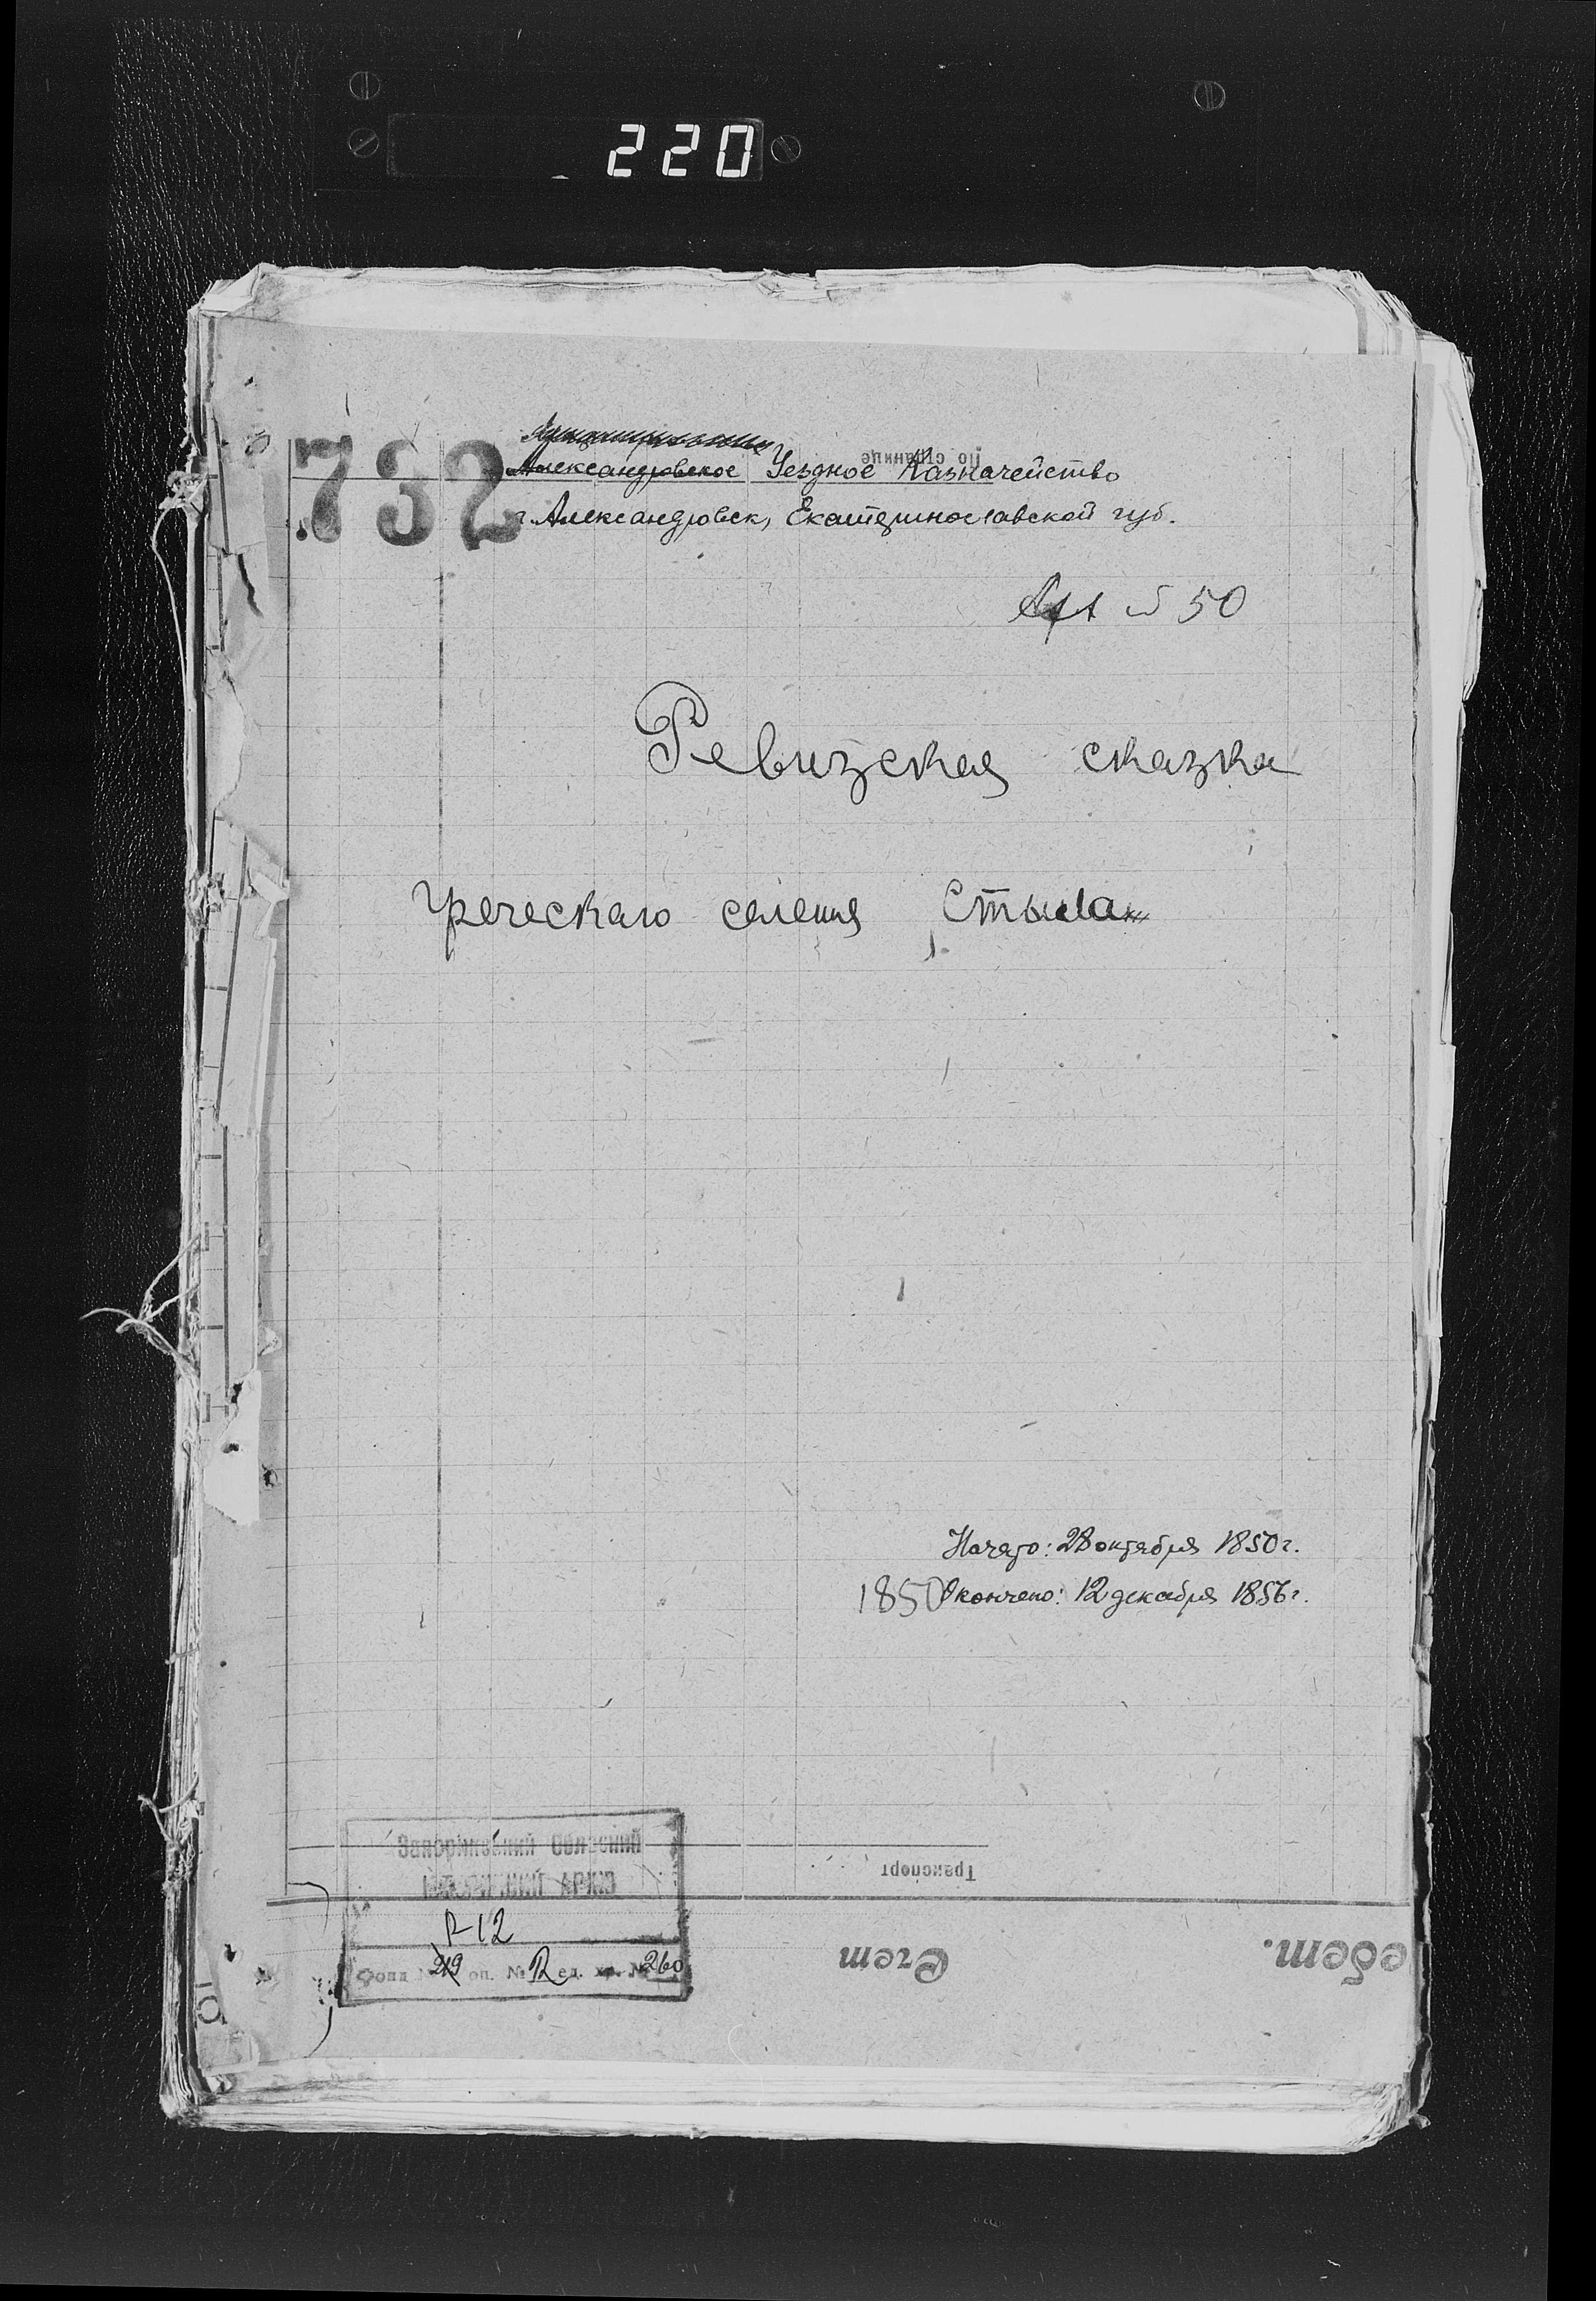 220
732
Александровское Уездное Казначейство
По странице
г. Александровск, Екатеринославской губ.
50
Ревизская сказка
греческаго селения Стыла
Начато: 28 октября 1850 г.
1850 Окончено: 12 декабря 1856 г.
Транспорт
Запорізький Обласний
АРХІВ
Р-12
Фонд № 219 оп. № ед. хр. № 260
Счет
ебет.